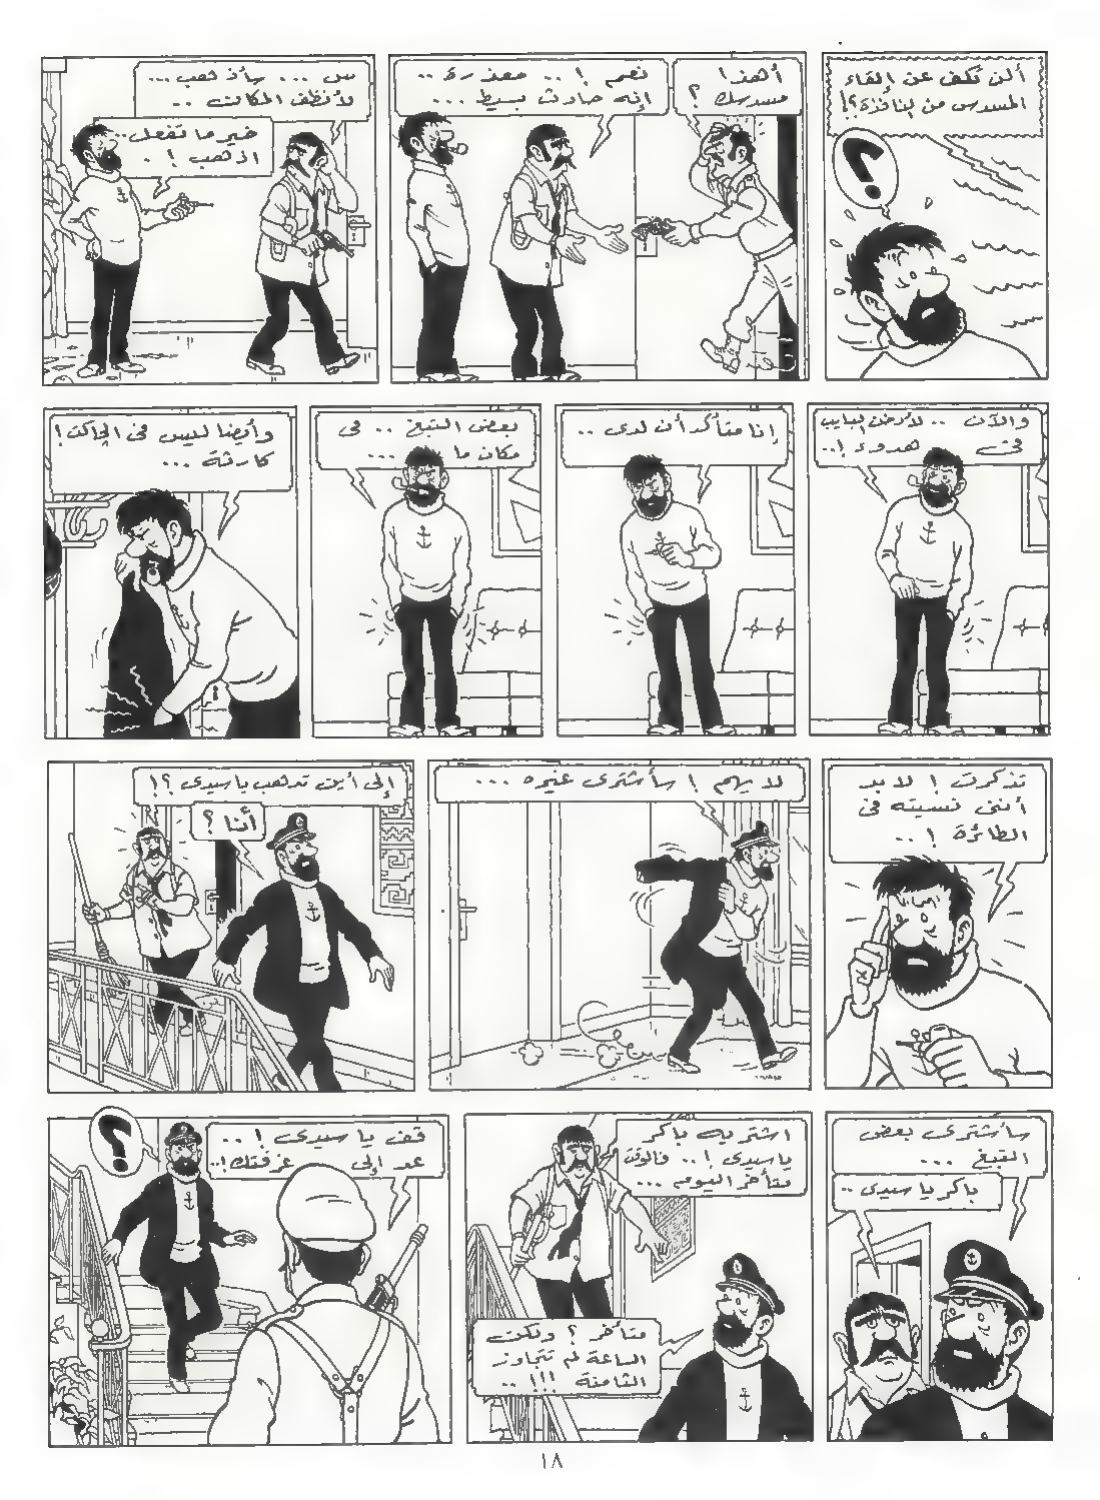 ألن تكف عن إلقاء
المسدس من النافذة؟!
؟
أهذا
مسدسك ؟
نعم ! .. معذرة ..
إنه حادث بسيط ...
س ... سأذهب ...
لأنظف المكان ..
خير ما تفعل ..
اذهب ! .
والآن .. لأدخن البايب
فى هدوء !..
إنا متأكد أن لدى ..
بعض التبغ .. فى
مكان ما ...
وأيضا ليس فى الجاكت !
كارثة ...
تذكرت ! لا بد
أننى نسيته فى
الطائرة ! ..
لا يهم ! سأشترى غيره ...
إلى أين تذهب يا سيدى ؟!
أنا ؟
سأشترى بعض
التبغ ...
باكر يا سيدى ..
اشتريه باكر
يا سيدى ! .. فالوقت
متأخر اليوم ...
متأخر ؟ ولكن
الساعة لم تتجاوز
الثامنة !!! ..
قف يا سيدى ! ..
عد إلى غرفتك !..
؟
١٨